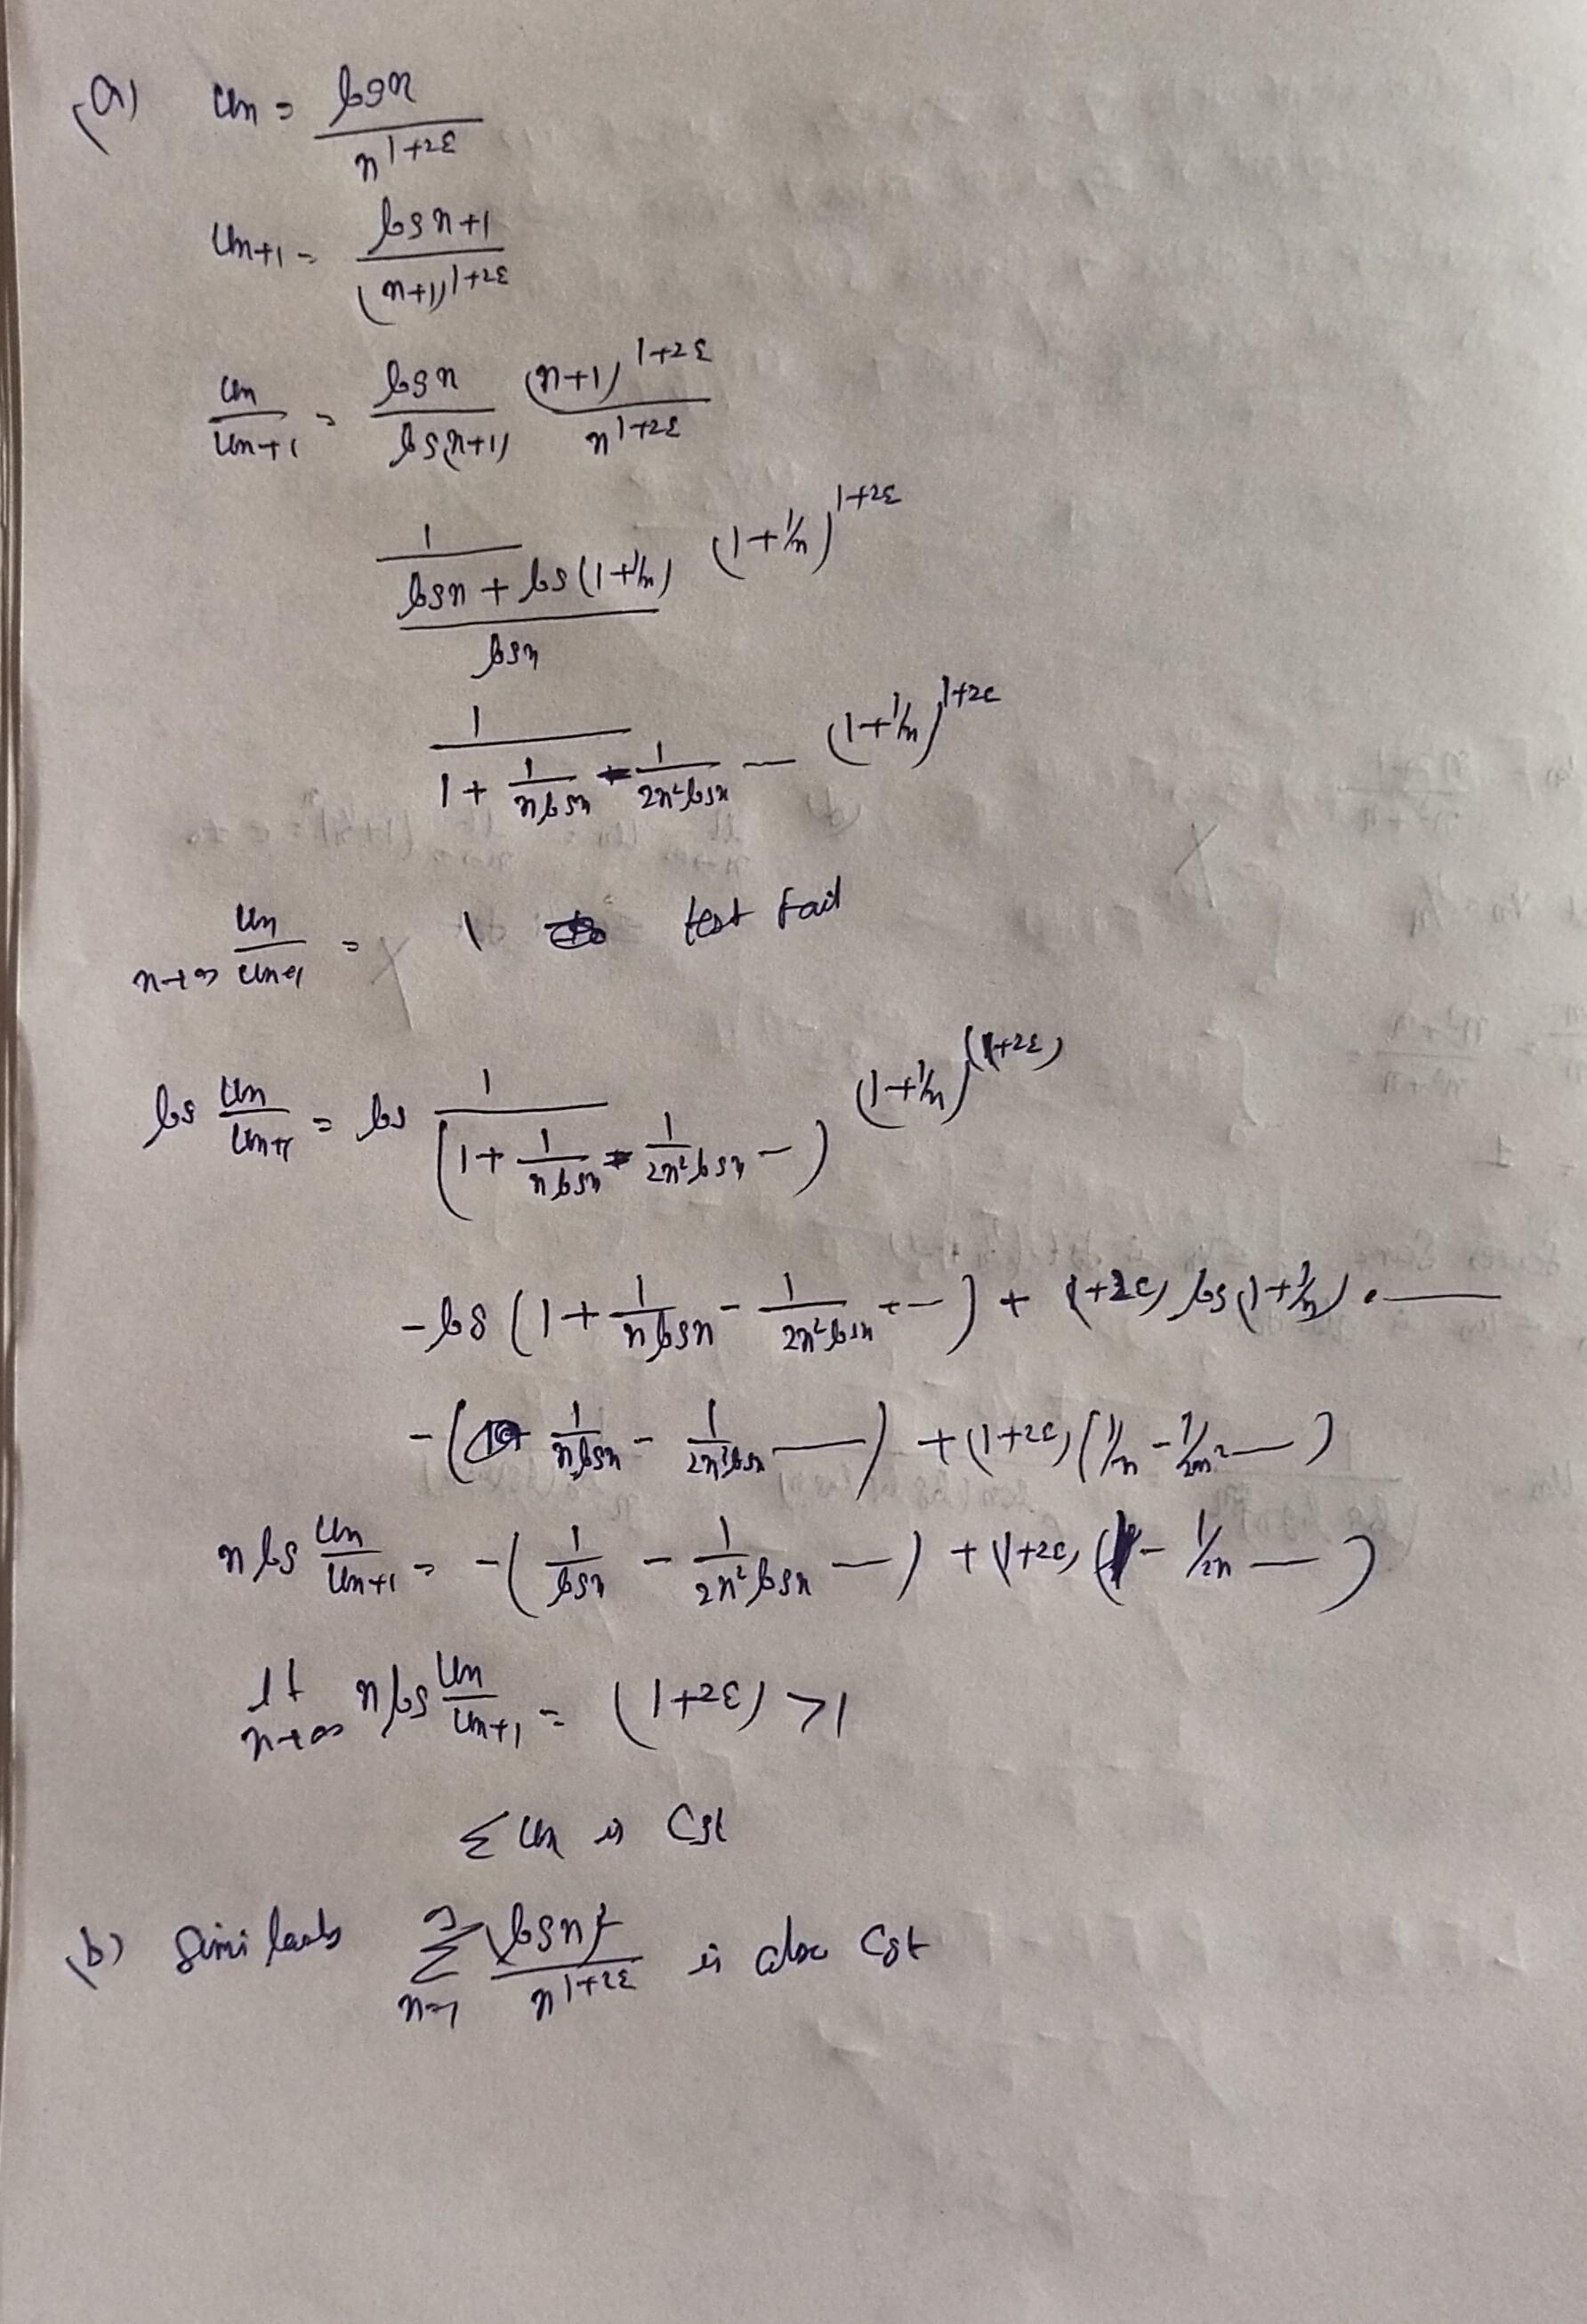 (a) Un = log n / n^(1+2ε)
Un+1 = log n+1 / (n+1)^(1+2ε)
Un / Un+1 = log n / log(n+1) (n+1)^(1+2ε) / n^(1+2ε)
1 / ((log n + log(1+1/n)) / log n) (1+1/n)^(1+2ε)
1 / (1 + 1/(n log n) - 1/(2n² log n) —) (1+1/n)^(1+2ε)
n→∞ Un / Un+1 = 1 test fail
log Un / Un+1 = log 1 / (1 + 1/(n log n) - 1/(2n² log n) —) (1+1/n)^((1+2ε))
-log (1 + 1/(n log n) - 1/(2n² log n) + —) + (1+2ε) log(1+1/n) . ——
-(1/(n log n) - 1/(2n² log n) ——) + (1+2ε) (1/n - 1/2n² —)
n log Un / Un+1 = -(1/log n - 1/(2n² log n) —) + (1+2ε) (1 - 1/2n —)
lt n→∞ n log Un / Un+1 = (1+2ε) >1
Σ Un is Cgt
(b) Similarly Σ n=1 ∞ (log n)² / n^(1+2ε) is also Cgt